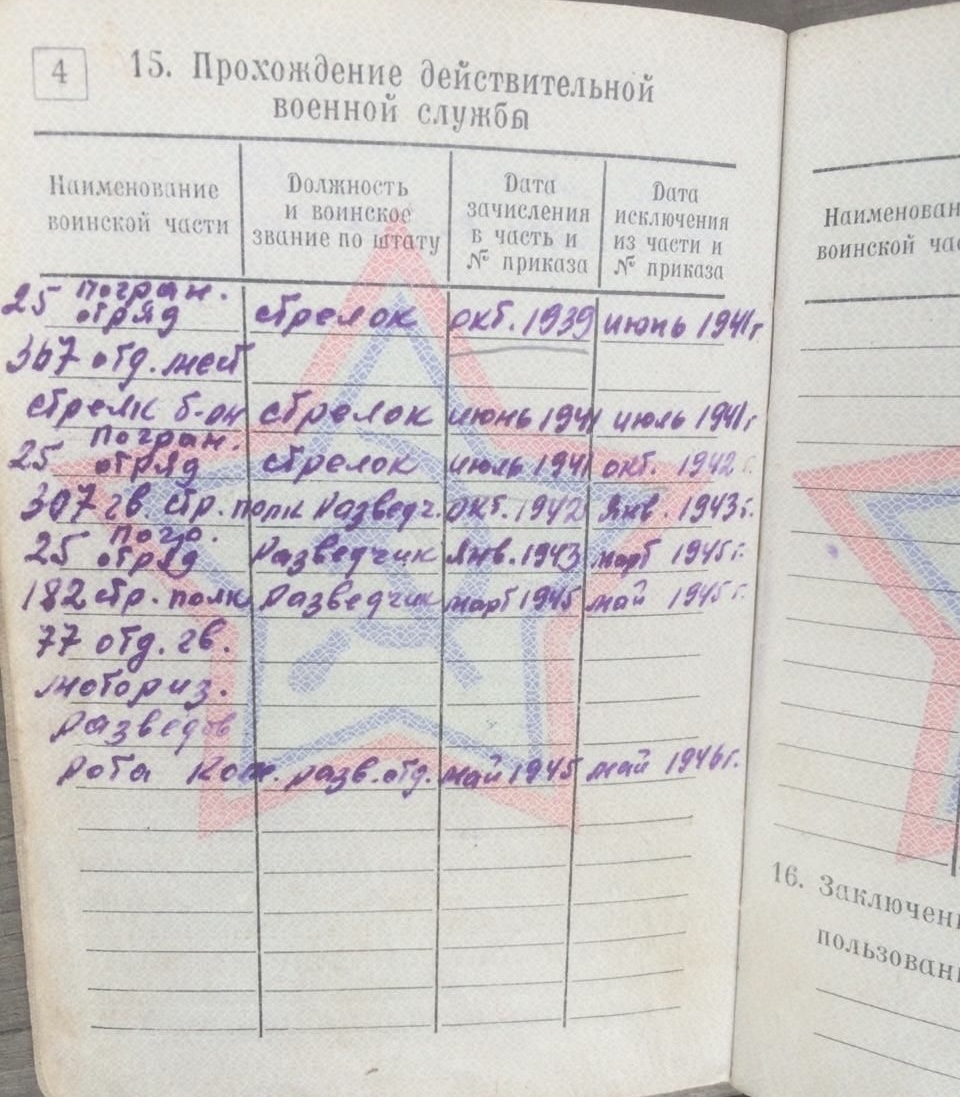 4
15. Прохождение действительной
военной службы
Наименование
воинской части
Должность
и воинское
звание по штату
Дата
зачисления
в часть и
№ приказа
Дата
исключения
из части и
№ приказа
25 погран.
отряд стрелок окт. 1939 июнь 1941г
367 отд.
стрелк б-он стрелок июнь 1941 июль 1941г
25 погран.
отряд стрелок июль 1941 окт. 1942г.
307 гв. стр. полк Разведч. окт. 1942 Янв. 1943г.
25 погр.
отряд Разведчик Янв. 1943 март 1945г.
182 стр. полк Разведчик март 1945 май 1945г.
77 отд. гв.
моториз.
Разведов
Рота Ком. разв. отд. май 1945 май 1946г.
Наименован
воинской час
16. Заключен
пользован